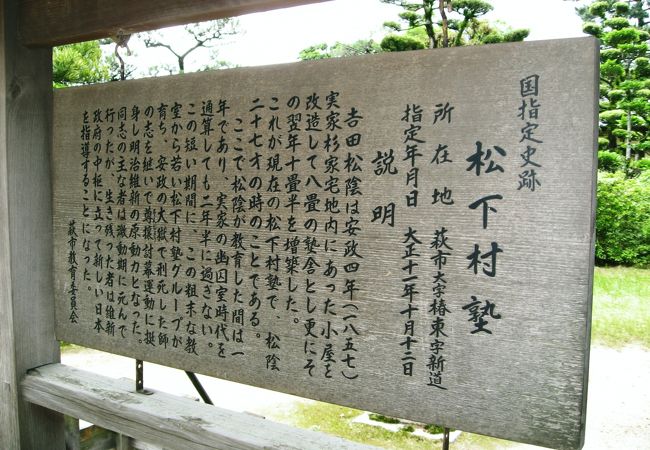 国指定史跡
松下村塾
所在地 萩市大字椿東字新道
指定年月日 大正十一年十月十二日
説明
吉田松陰は安政四年(一八五七)
実家杉家宅地内にあった小屋を
改造して八畳の塾舎とし更にそ
の翌年十畳半を増築した。
これが現在の松下村塾で、松陰
二十七才の時のことである。
ここで松陰が教育した間は一
年であり、実家の幽囚室時代を
通算しても二年半に過ぎない。
この短い期間に、この粗末な教
室から若い松下村塾グループが
育ち、安政の大獄で刑死した師
の志を継いで尊攘討幕運動に挺
身し明治維新の原動力となった。
同志の主な者は激動期に死んで
行ったが、生き残った者は維新
政府の中枢に立って新しい日本
を指導することになった。
萩市教育委員会